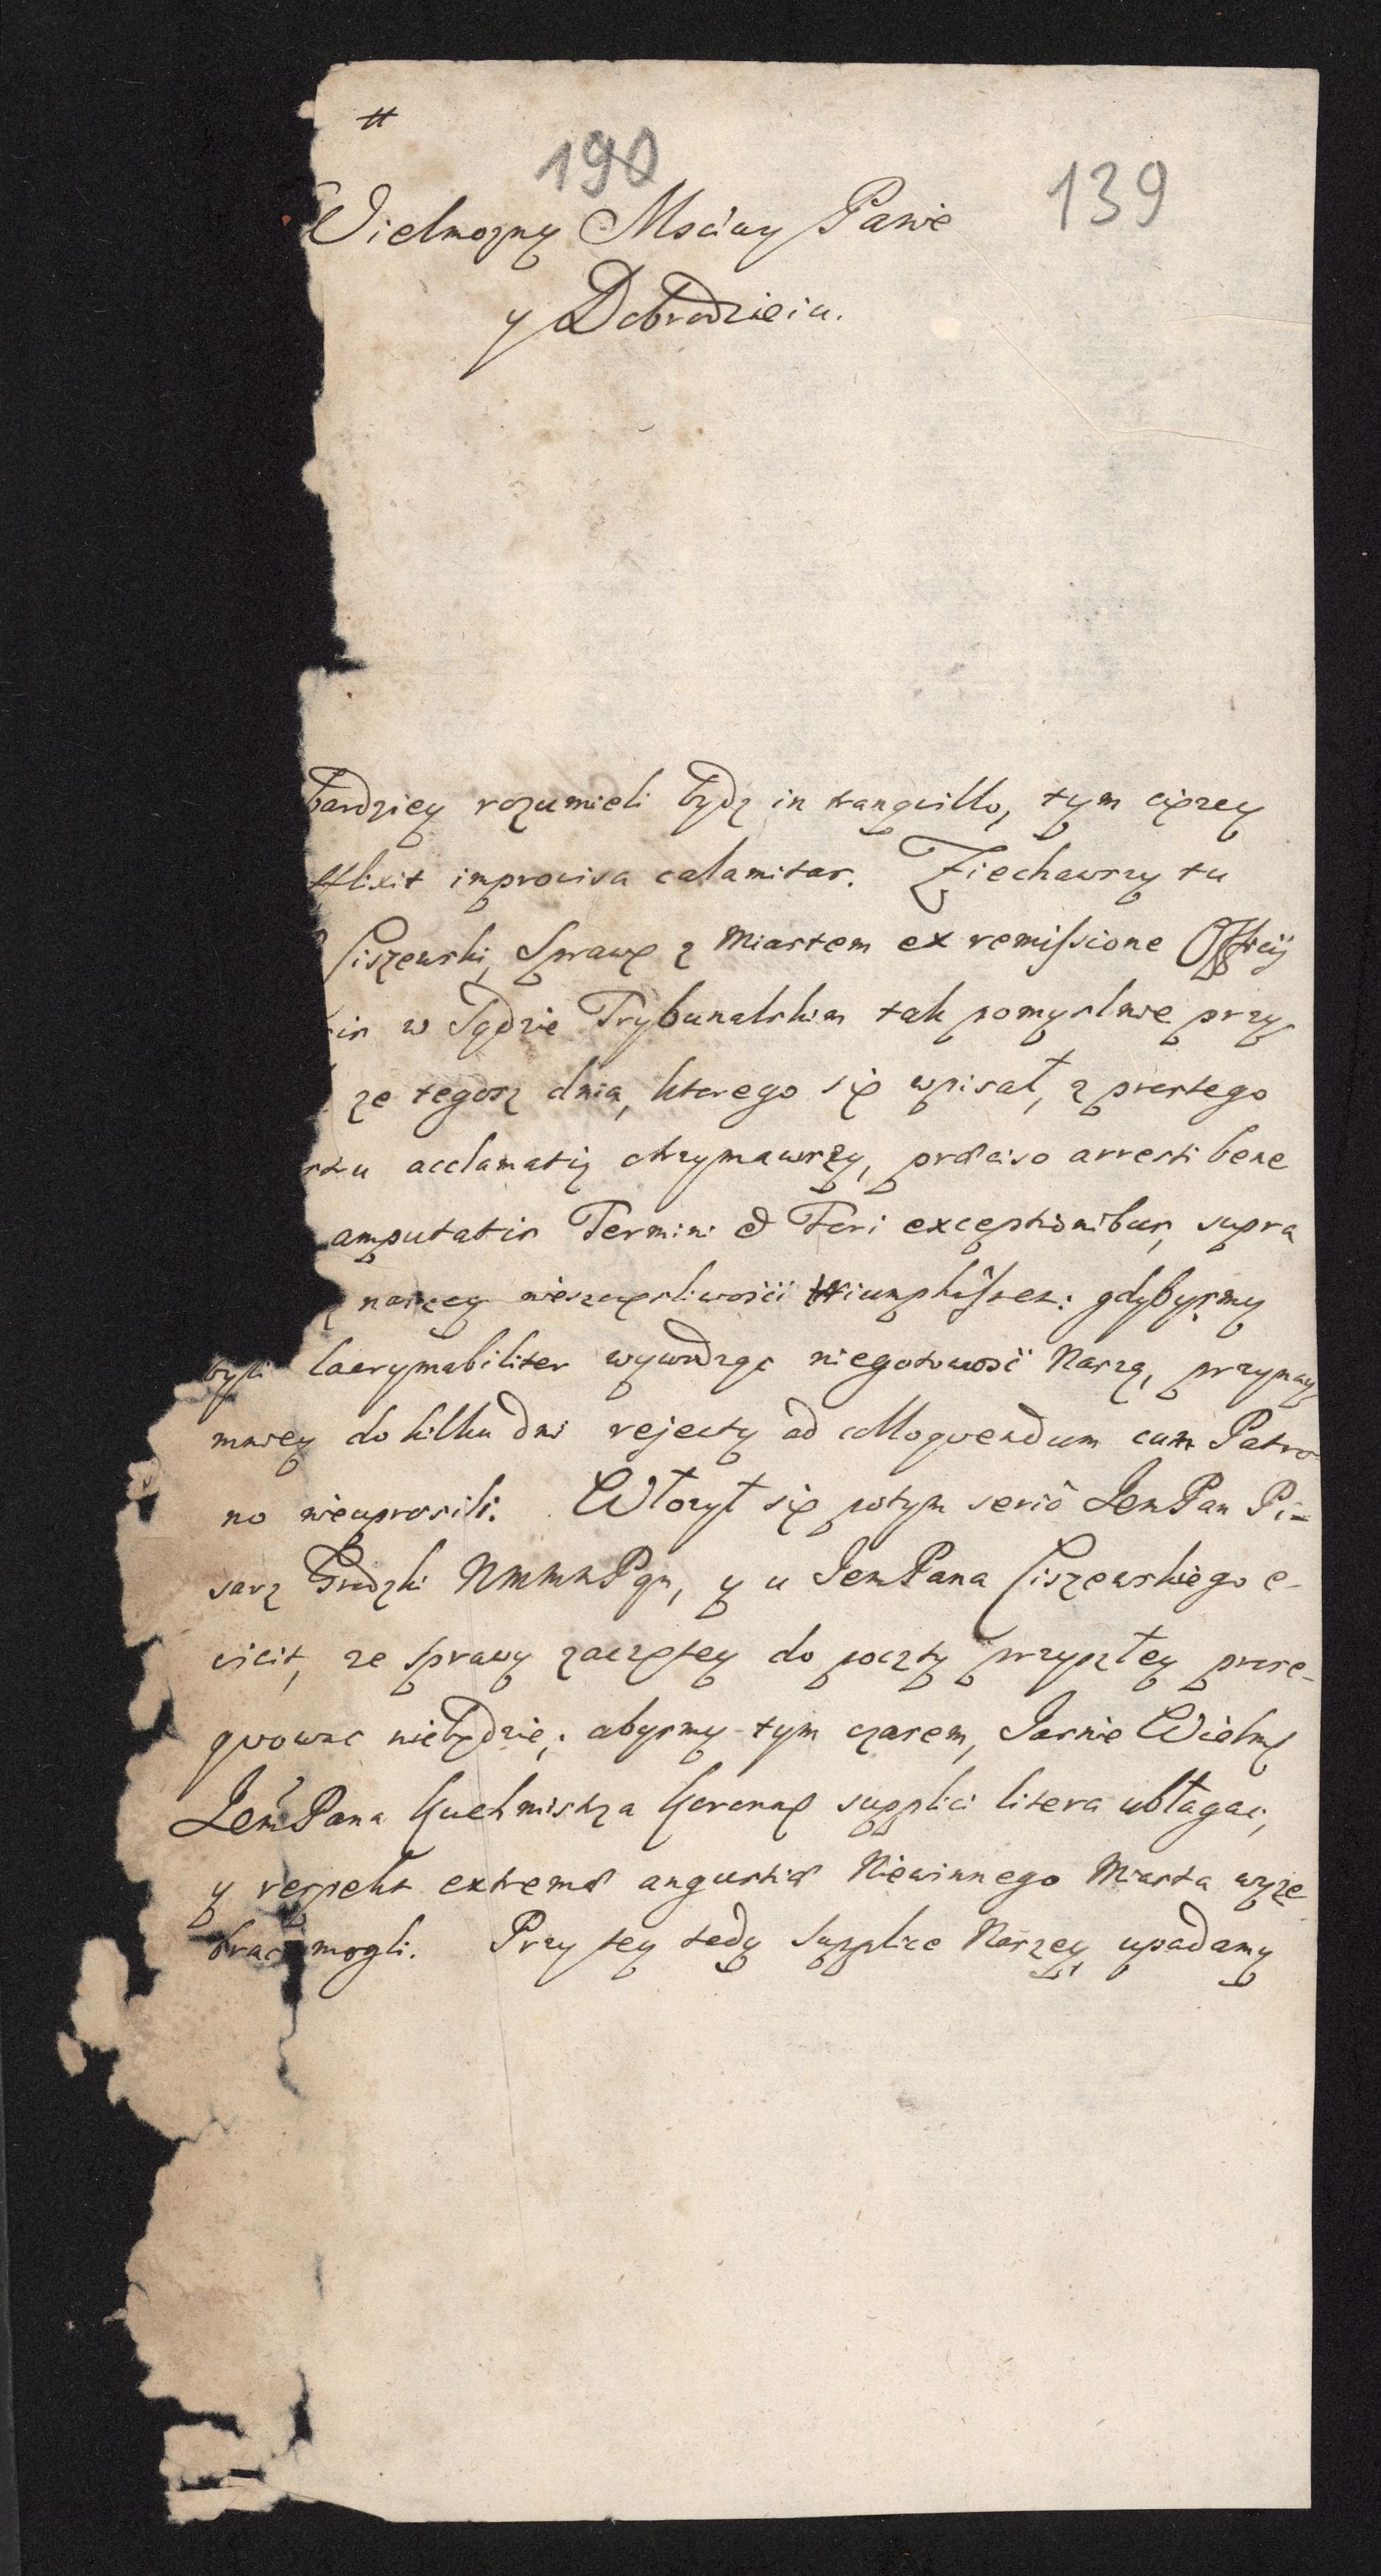 #
190
139
Wielmozny Msciwy Panie
y Dobrodzieiu.
bardziey rozumieli bydz in tranquillo, tym cięzey
afflixit improvisa calamitas. Ziechawszy tu
Ciszewski, Sprawę z Miastem ex remissione Officij
w Sądzie Trybunalskim tak pomyslnie przy
ze tegosz dnia, ktorego się wpisał, z prostego
acclamatią otrzymawszy, præciso arresti bene
amputatis Termini & Fori exceptionibus, supra
naszey nieszczęsliwosci triumphasset: gdybysmy
byli lacrymabiliter wywodząc niegotowosć Naszą, przynay
mniey do kilku dni rejecty ad colloquendum cum Patro-
no nieuprosili. Włozył się potym seriò JemPan Pi-
sarz Grodzki NmmnPan, y u JemPana Ciszewskiego e-
vicit, ze sprawy zaczętey do poczty przyszłey prose-
qvowac niebędzie; abysmy tym czasem, Jasnie Wielmę
JemPana Kuchmistrza Koronnę supplici litera ubłagac,
y respekt extremæ angustiæ Niewinnego Miasta wyze
brac mogli. Przy tey tedy Supplice Naszey upadamy